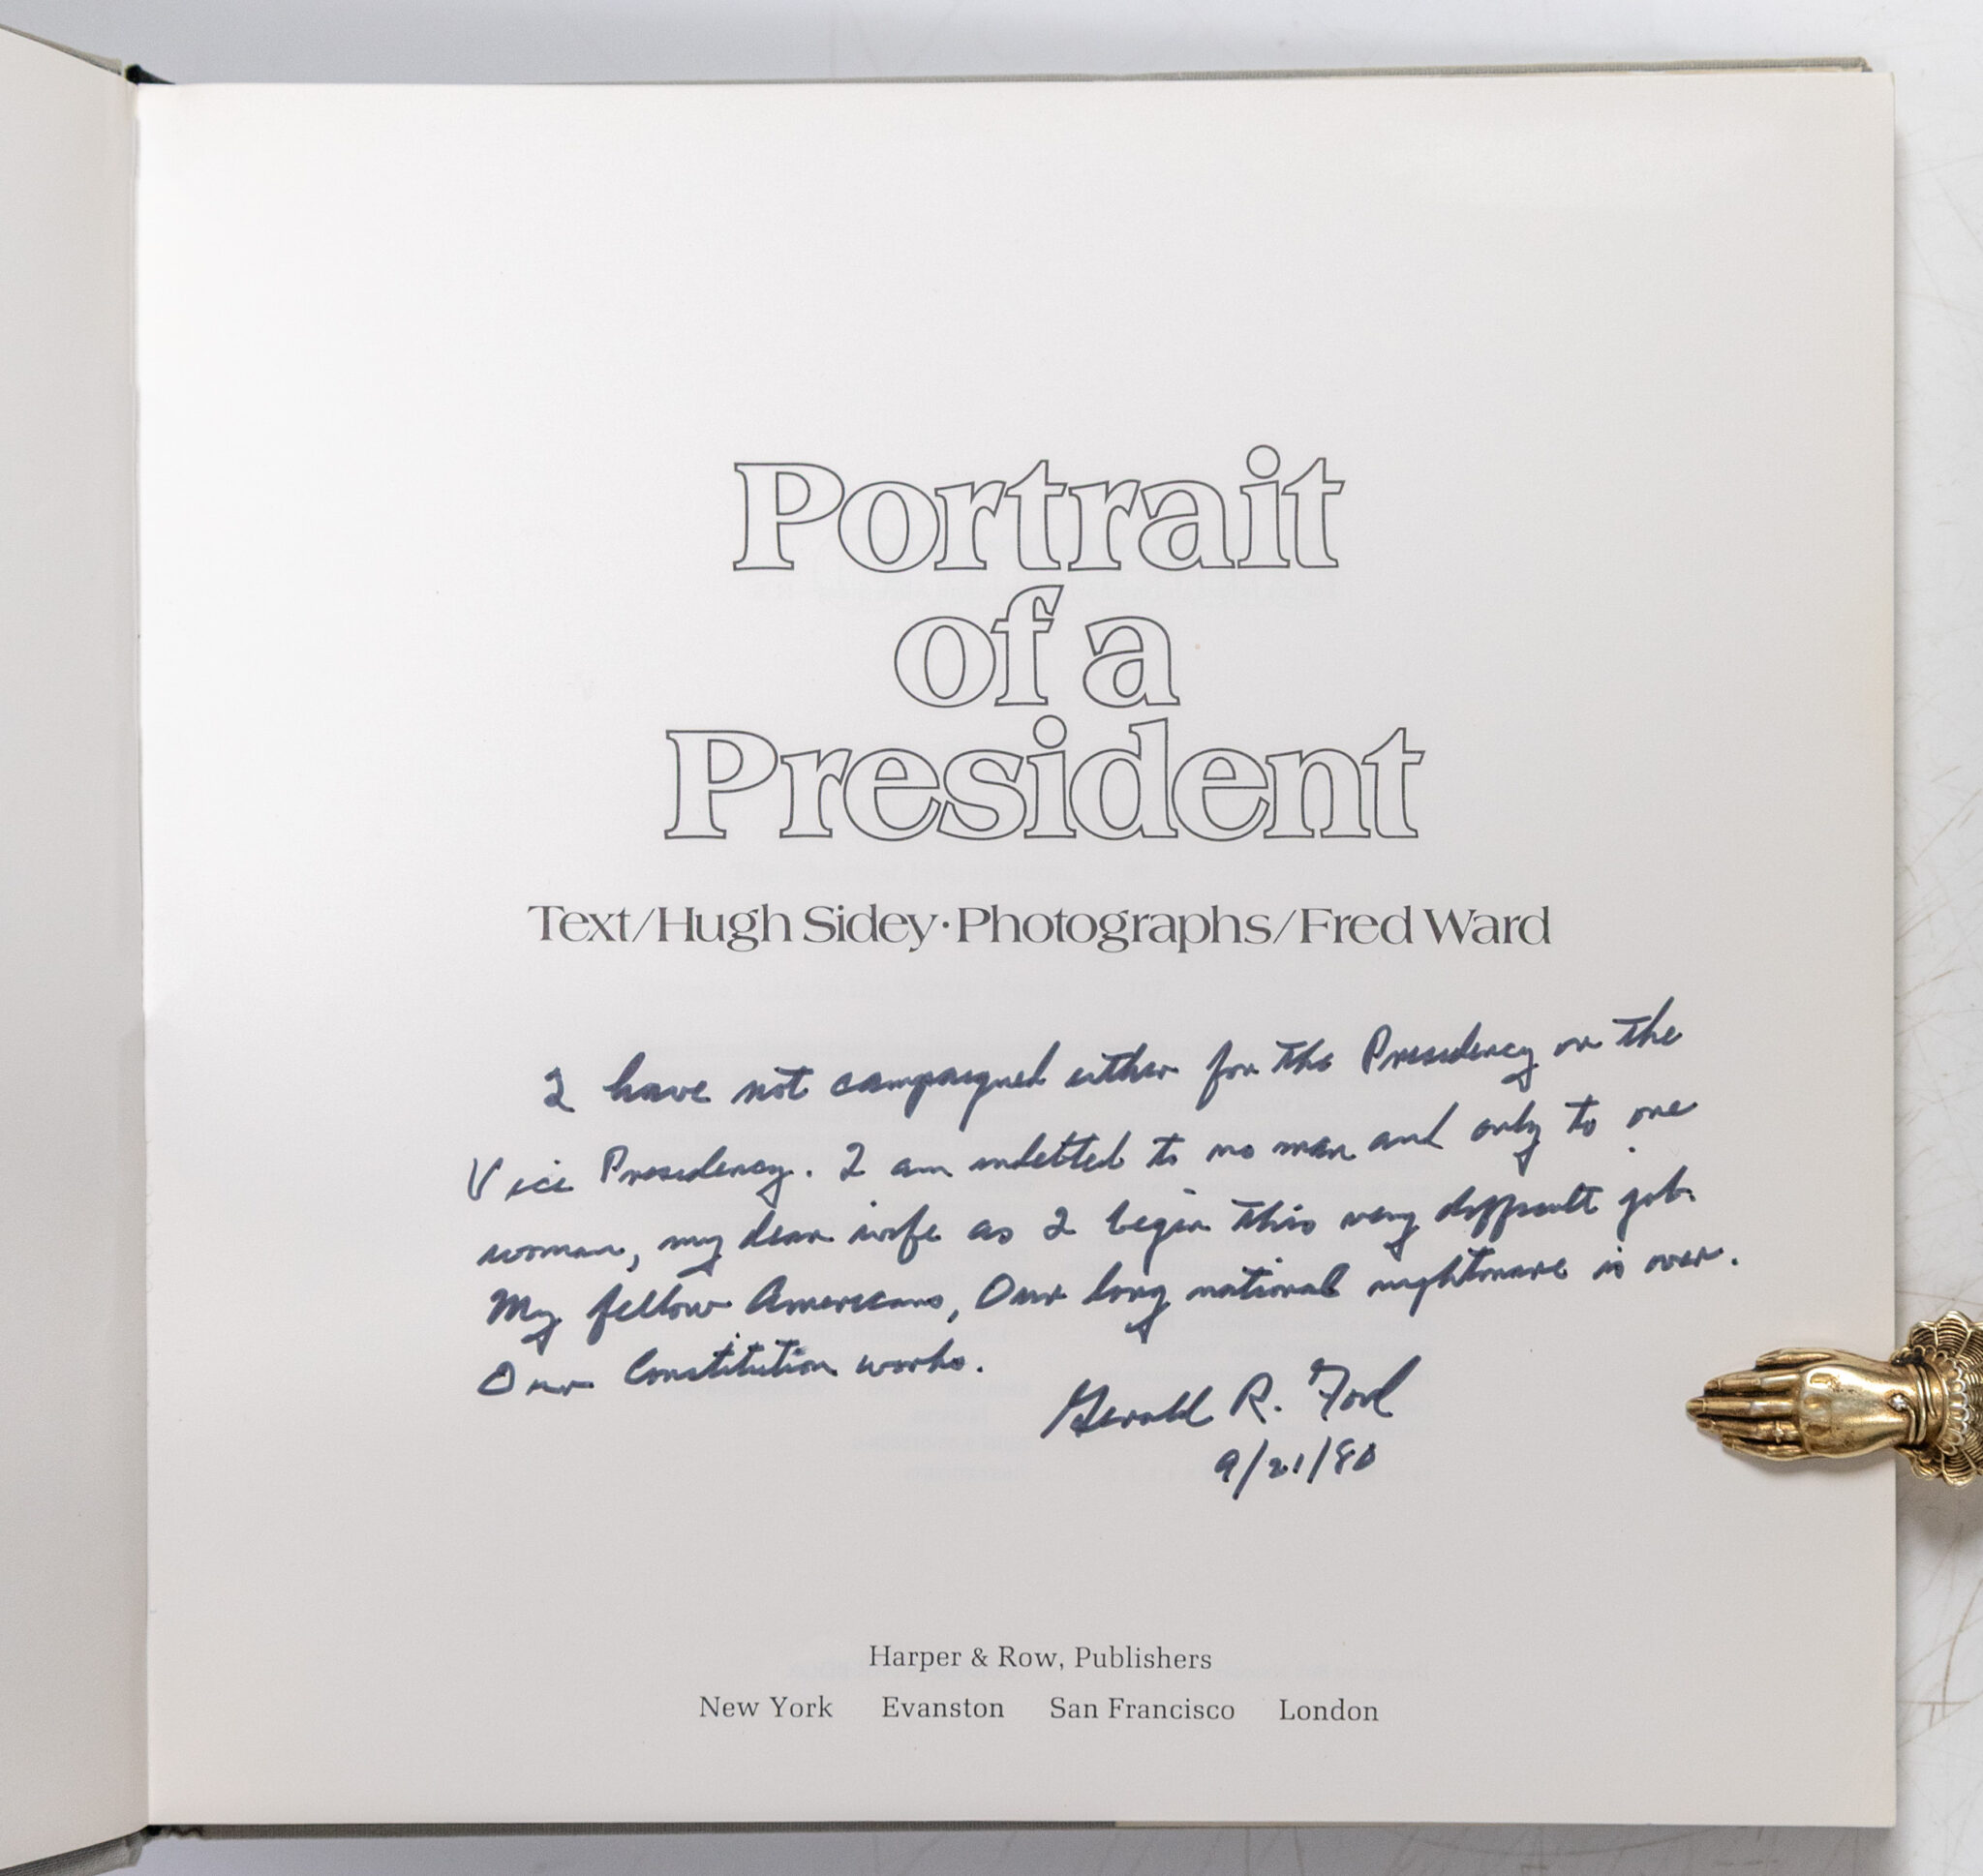 Portrait
of a
President
Text/Hugh Sidey·Photographs/Fred Ward
I have not campaigned either for the Presidency or the
Vice Presidency. I am indebted to no man and only to one
woman, my dear wife as I begin this very difficult job.
My fellow Americans, Our long national nightmare is over.
Our Constitution works.
Gerald R. Ford
9/21/80
Harper & Row, Publishers
New York Evanston San Francisco London